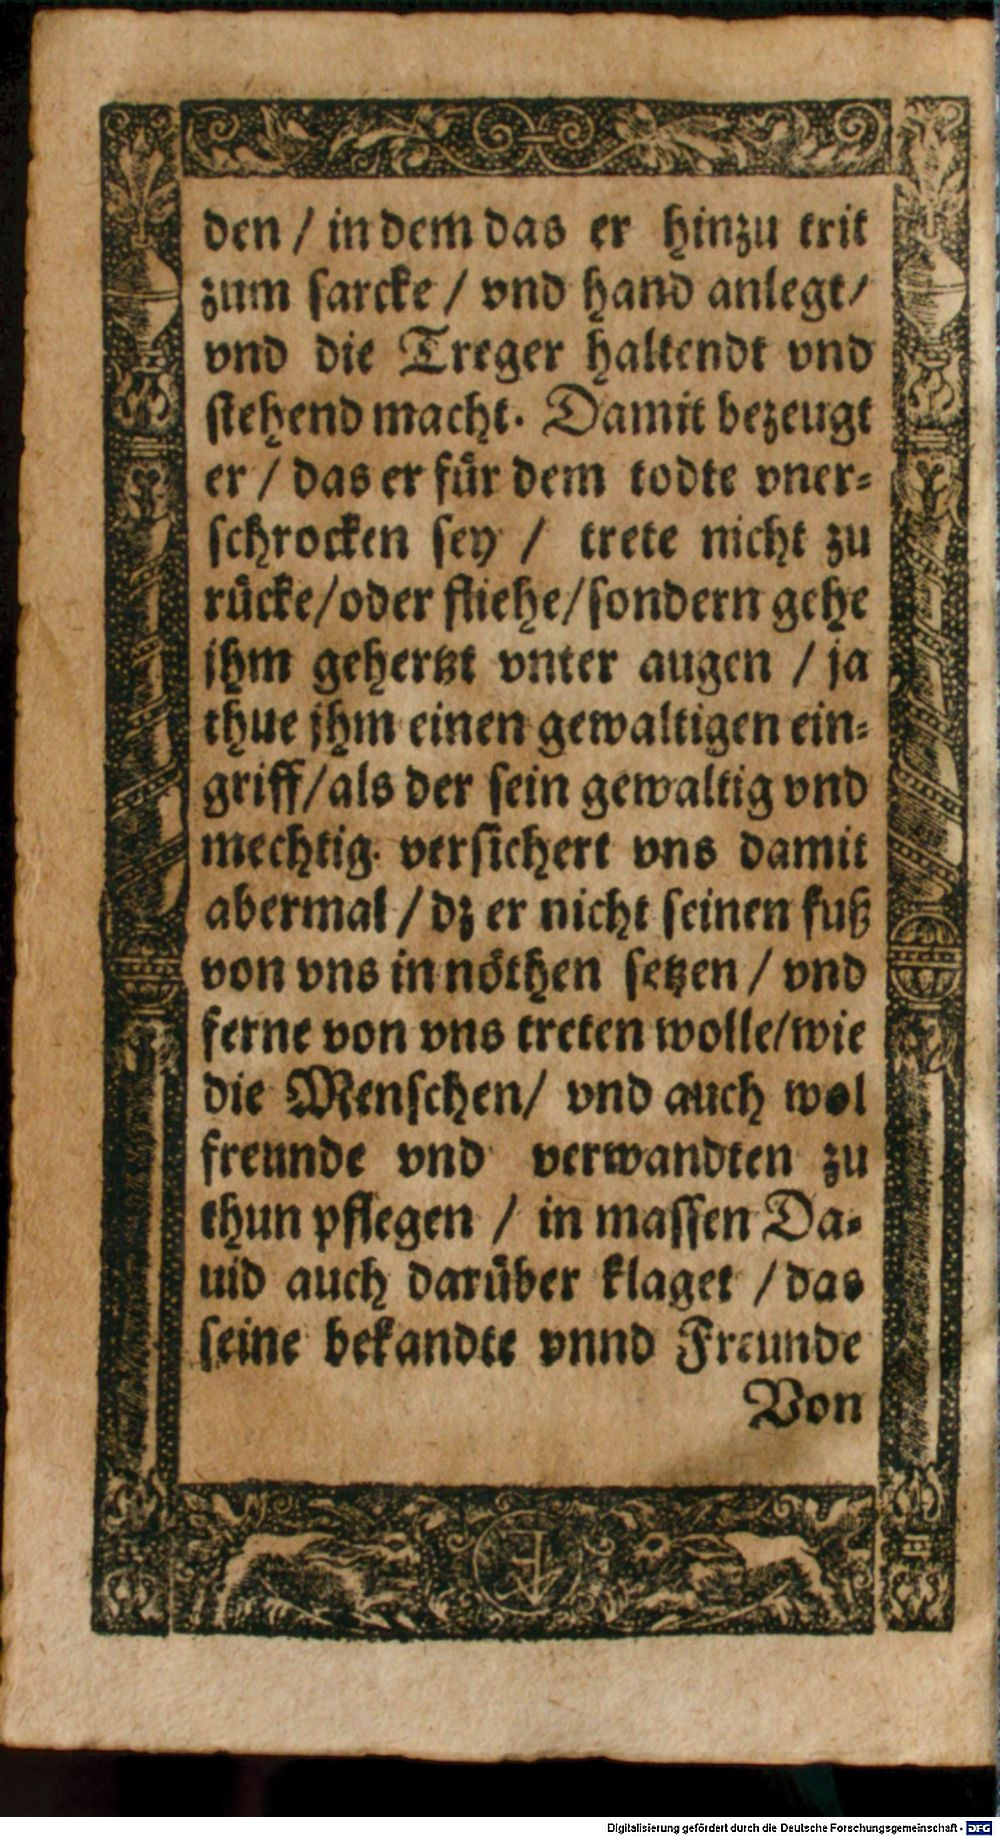 den / in dem das er hinzu trit
zum sarcke / vnd hand anlegt /
vnd die Treger haltendt vnd
stehend macht. Damit bezeugt
er / das er für dem todte vner-
schrocken sey / trete nicht zu
rücke / oder fliehe / sondern gehe
jhm gehertzt vnter augen / ja
thue jhm einen gewaltigen ein-
griff / als der sein gewaltig vnd
mechtig. versichert vns damit
abermal / dz er nicht seinen fuß
von vns in nöthen setzen / vnd
ferne von vns treten wolle / wie
die Menschen / vnd auch wol
freunde vnd verwandten zu
thun pflegen / in massen Da-
uid auch darüber klaget / das
seine bekandte vnnd Freunde
Von
Digitalisierung gefördert durch die Deutsche Forschungsgemeinschaft - DFG